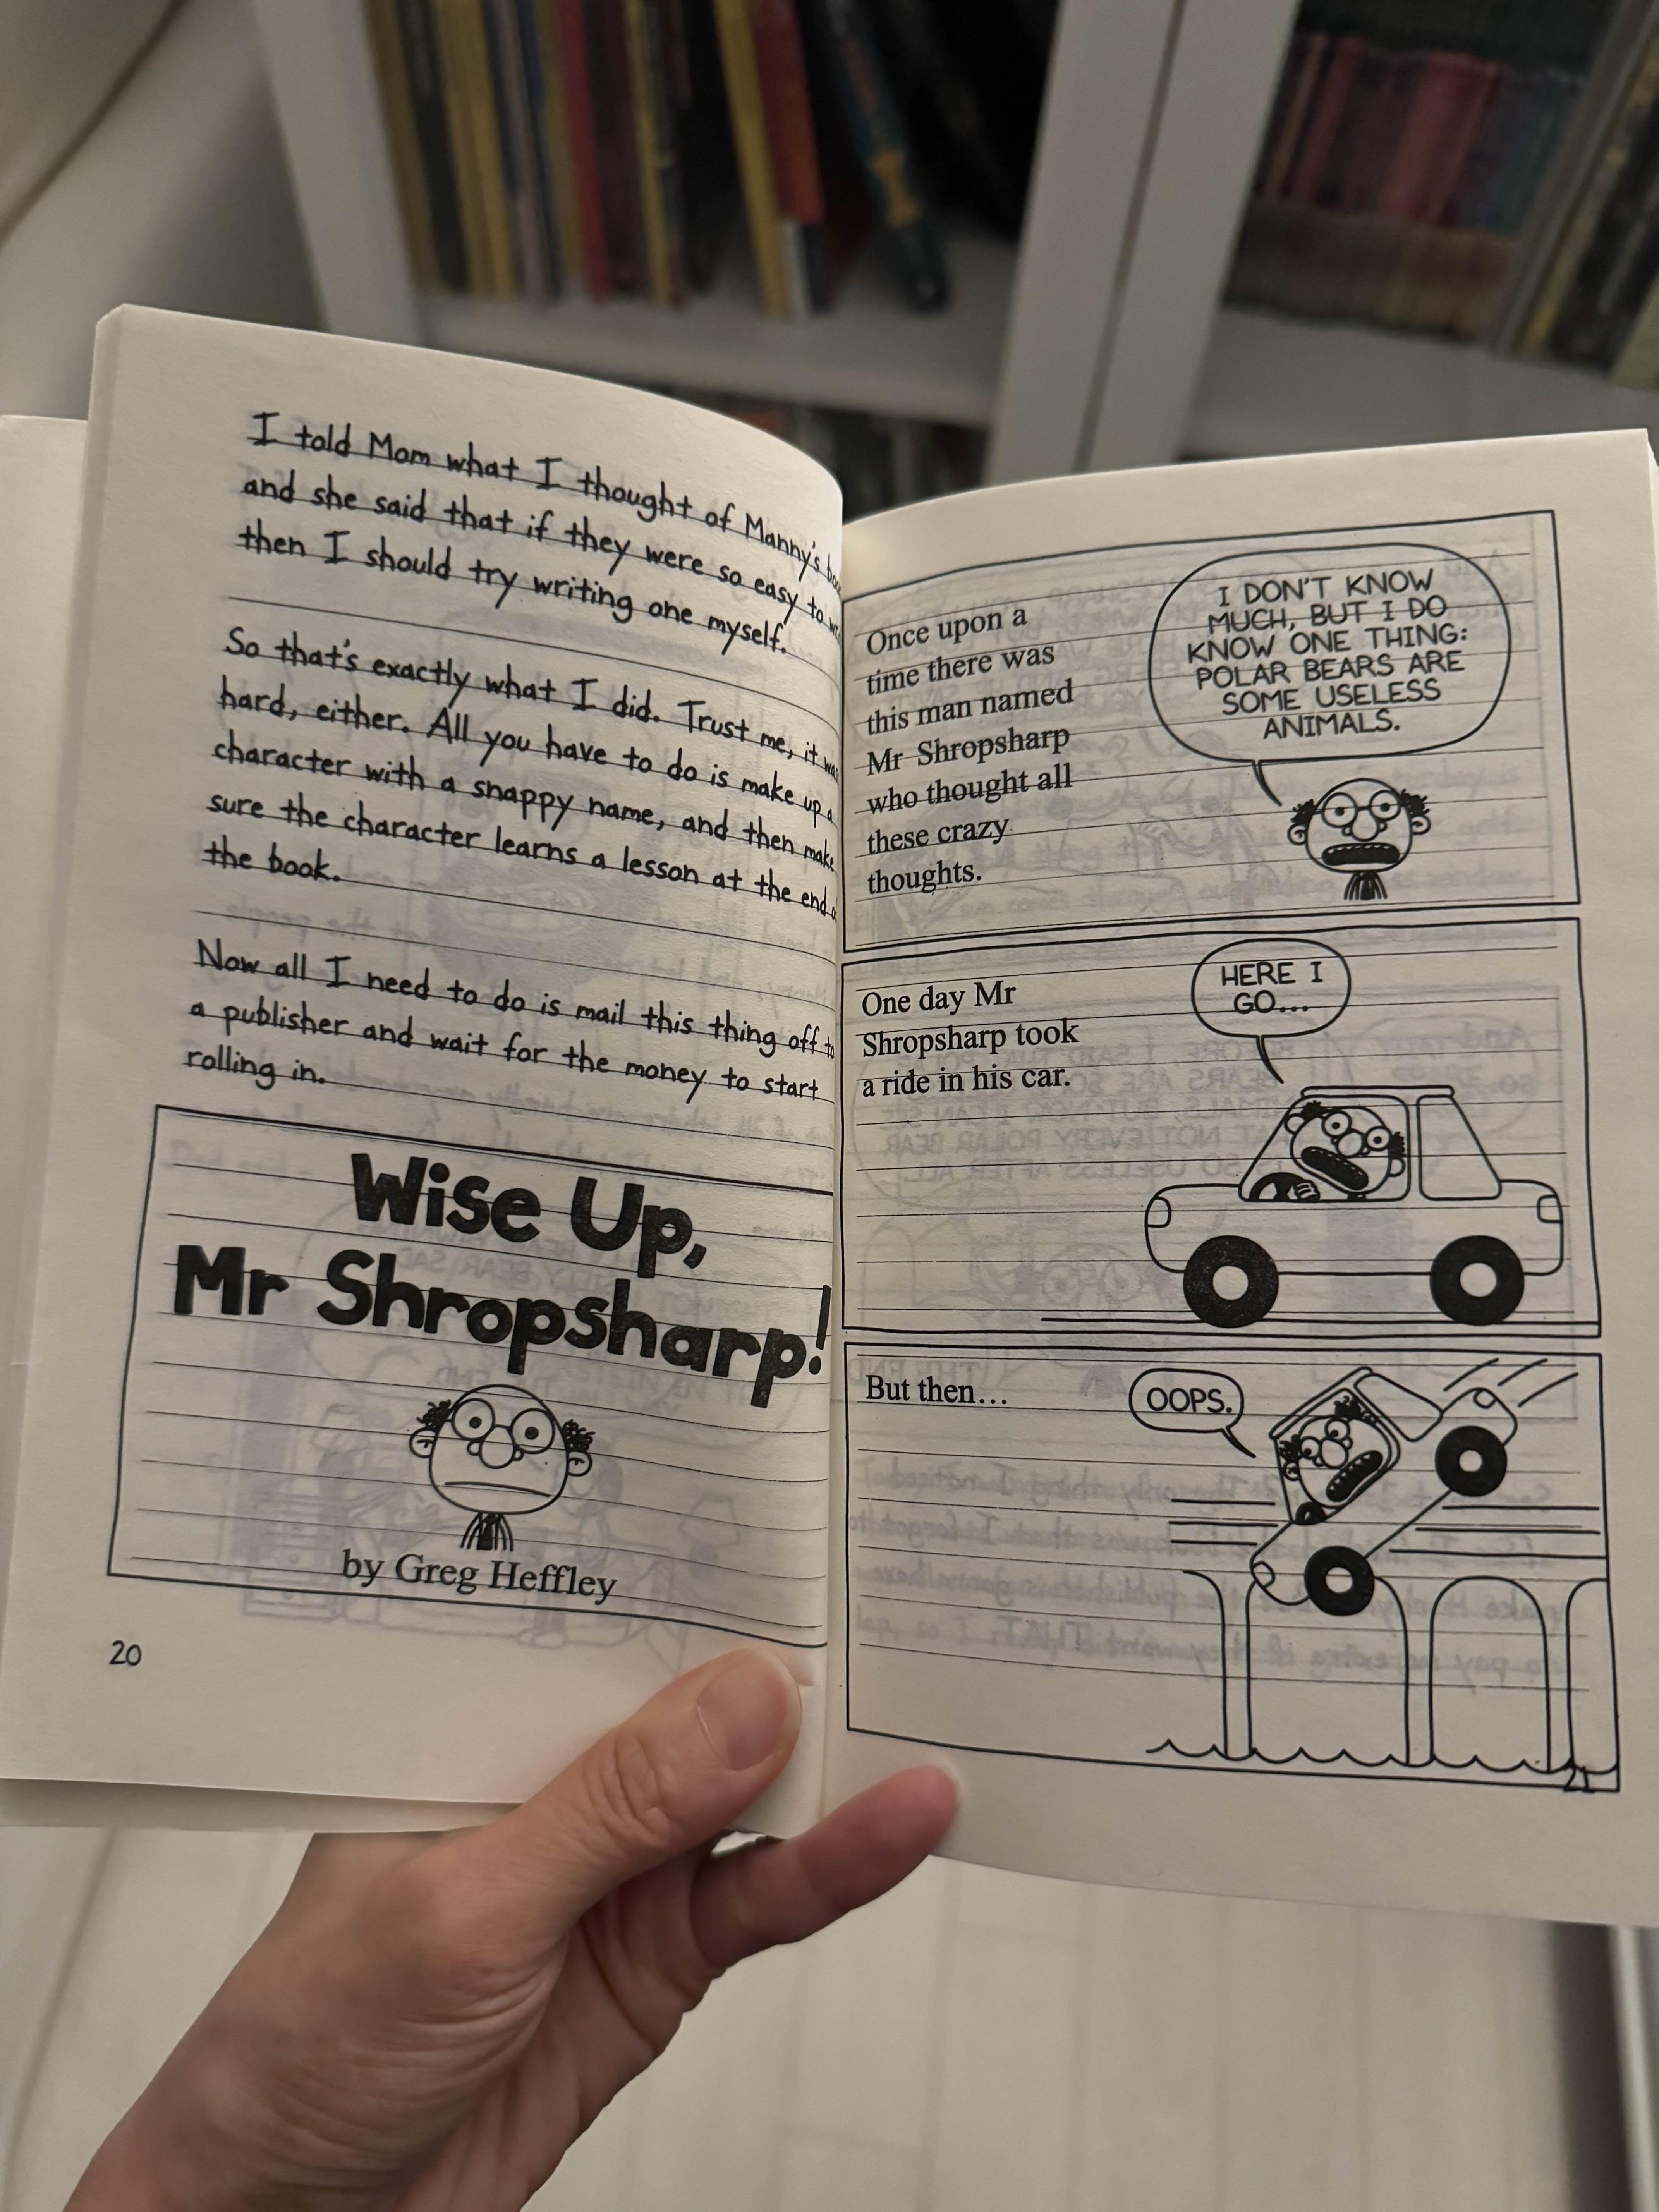 I told Mom what I thought of Manny's
and she said that if they were so easy to
then I should try writing one myself.
So that's exactly what I did. Trust me, it
hard, either. All you have to do is make up a
character with a snappy name, and then make
sure the character learns a lesson at the end
the book.
Now all I need to do is mail this thing off to
a publisher and wait for the money to start
rolling in.
Wise Up,
Mr Shropsharp!
by Greg Heffley
20
Once upon a
time there was
this man named
Mr Shropsharp
who thought all
these crazy
thoughts.
I DON'T KNOW
MUCH, BUT I DO
KNOW ONE THING:
POLAR BEARS ARE
SOME USELESS
ANIMALS.
One day Mr
Shropsharp took
a ride in his car.
HERE I
GO...
But then...
OOPS.
21